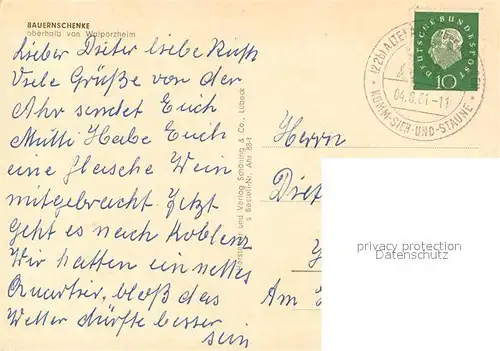 BAUERNSCHENKE
oberhalb von Walporzheim
Lieber Dieter liebe Ruth
Viele Grüße von der
Ahr sendet Euch
Mutti Habe Euch
eine Flasche Wein
mitgebracht Jetzt
geht es nach Koblenz
Wir hatten ein nettes
Quartier, bloß das
Wetter dürfte besser
sein
und Verlag Schöning & Co., Lübeck
Bestell-Nr. Ahr 88
DEUTSCHE BUNDESPOST
10
(22b)
04.8.61-11
KOMM-SIEH-UND-STAUNE
Herrn
Am
privacy protection
Datenschutz